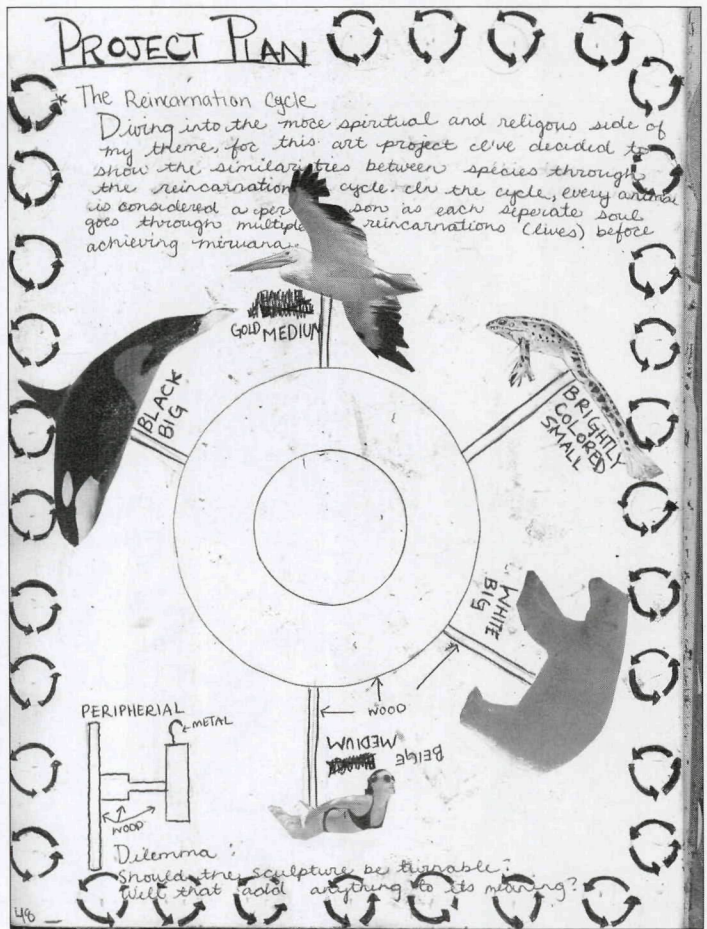 PROJECT PLAN
* The Reincarnation Cycle
Diving into the more spiritual and religous side of
my theme, for this art project I've decided to
show the similarities between species through
the reincarnation cycle. In the cycle, every animal
is considered a person as each seperate soul
goes through multiple reincarnations (lives) before
achieving nirwana.
GOLD MEDIUM
BLACK
BIG
BRIGHTLY
COLORED
SMALL
WHITE
BIG
WOOD
MEDIUM
BEIGE
PERIPHERIAL
METAL
WOOD
Dilemma:
Should the sculpture be turnable?
Will that add anything to its meaning?
48